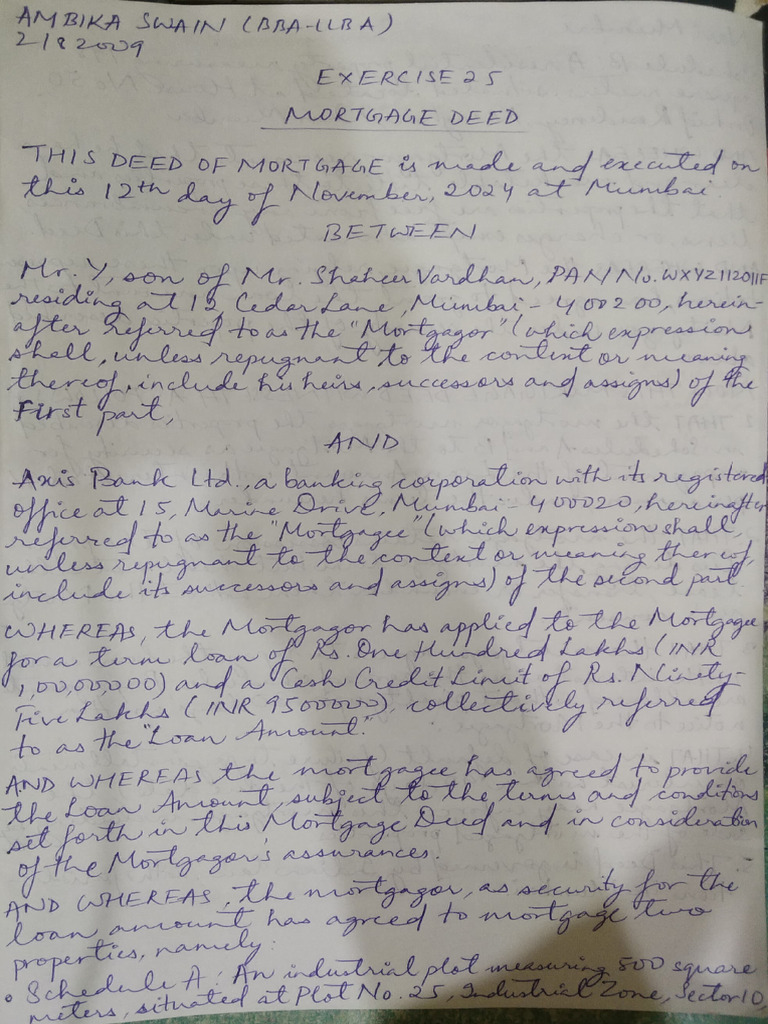 AMBIKA SWAIN (BBA-LLBA)
2182009
EXERCISE 25
MORTGAGE DEED
THIS DEED OF MORTGAGE is made and executed on
this 12th day of November, 2024 at Mumbai.
BETWEEN
Mr. Y, son of Mr. Shaheer Vardhan, PAN No. WXYZ112011F
residing at 12, Cedar Lane, Mumbai - 400200, herein-
after referred to as the "Mortgagor" (which expression
shall, unless repugnant to the context or meaning
thereof, include his heirs, successors and assigns) of the
First part,
AND
Axis Bank Ltd., a banking corporation with its registered
office at 15, Marine Drive, Mumbai - 400020, hereinafter
referred to as the "Mortgagee" (which expression shall,
unless repugnant to the context or meaning thereof,
include its successors and assigns) of the second part.
WHEREAS, the Mortgagor has applied to the Mortgagee
for a term loan of Rs. One Hundred Lakhs (INR
1,00,00,000) and a Cash Credit Limit of Rs. Ninety-
Five Lakhs (INR 9500000), collectively referred
to as the "Loan Amount."
AND WHEREAS the mortgagee has agreed to provide
the Loan Amount, subject to the terms and conditions
set forth in this Mortgage Deed and in consideration
of the Mortgagor's assurances.
AND WHEREAS, the mortgagor, as security for the
loan amount has agreed to mortgage two
properties, namely:
• Schedule A: An industrial plot measuring 500 square
meters, situated at Plot No. 25, Industrial Zone, Sector 10,